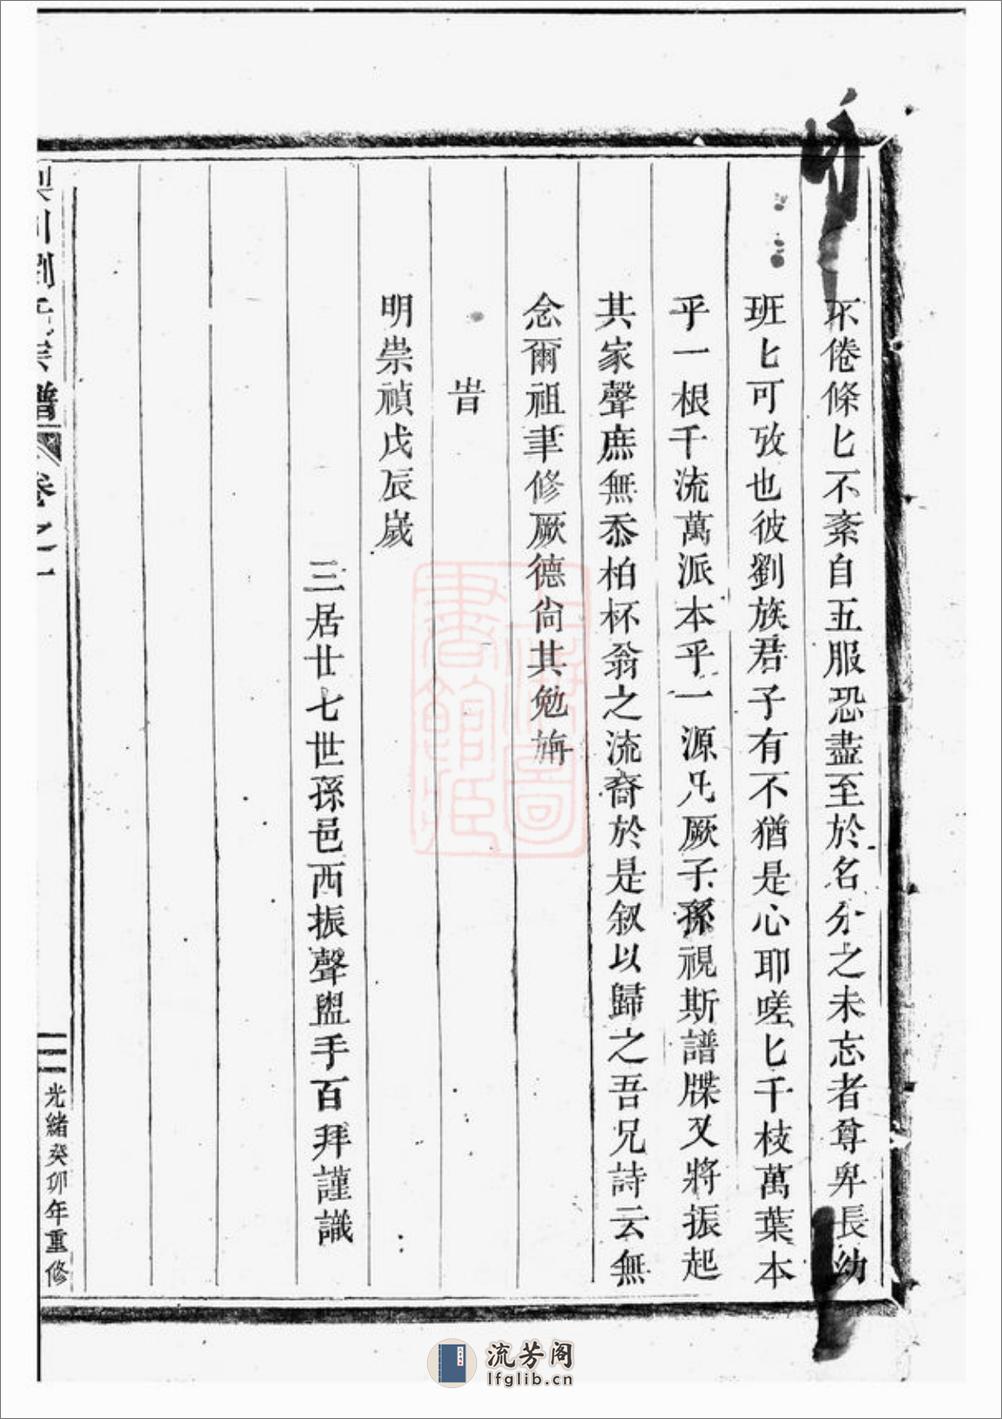 不倦條匕不紊自五服恐盡至於名分之未忘者尊卑長幼
班匕可攷也彼劉族君子有不猶是心耶嗟匕千枝萬葉本
乎一根千流萬派本乎一源凡厥子孫視斯譜牒又將振起
其家聲庶無忝柏杯翁之流裔於是叙以歸之吾兄詩云無
念爾祖聿修厥德尚其勉旃
旹
明崇禎戊辰歲
三居廿七世孫邑西振聲盥手百拜謹識
川劉氏宗譜 卷之一
光緒癸卯年重修
上海圖書館藏
流芳阁
lfglib.cn